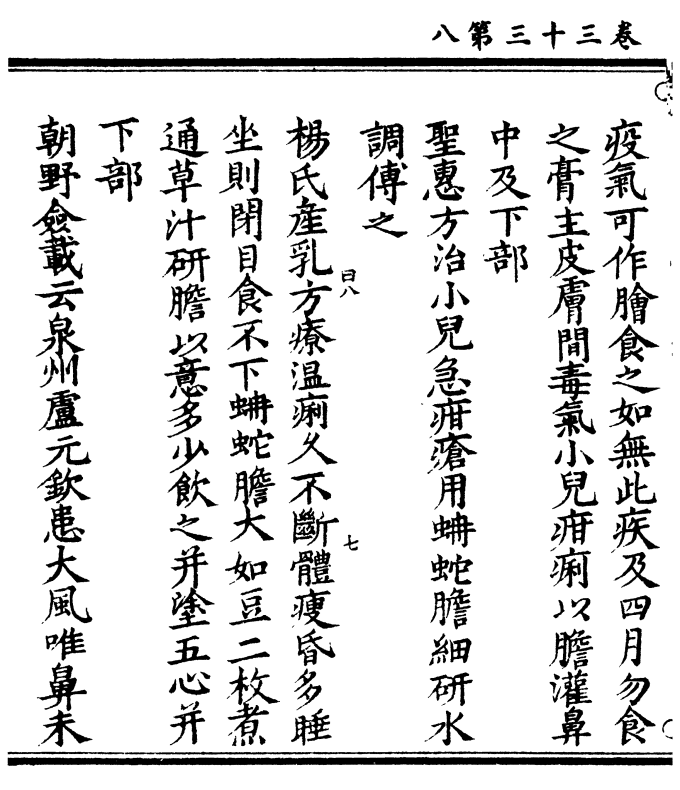 卷三十三第八
疫氣可作膾食之如無此疾及四月勿食
之膏主皮膚間毒氣小兒疳痢以膽灌鼻
中及下部
聖惠方治小兒急疳瘡用蚺蛇膽細研水
調傅之
楊氏產乳方療温痢久不斷體瘦昏多睡
坐則閉目食不下蚺蛇膽大如豆二枚煮
通草汁研膽以意多少飲之并塗五心并
下部
朝野僉載云泉州盧元欽患大風唯鼻未
曰八
七